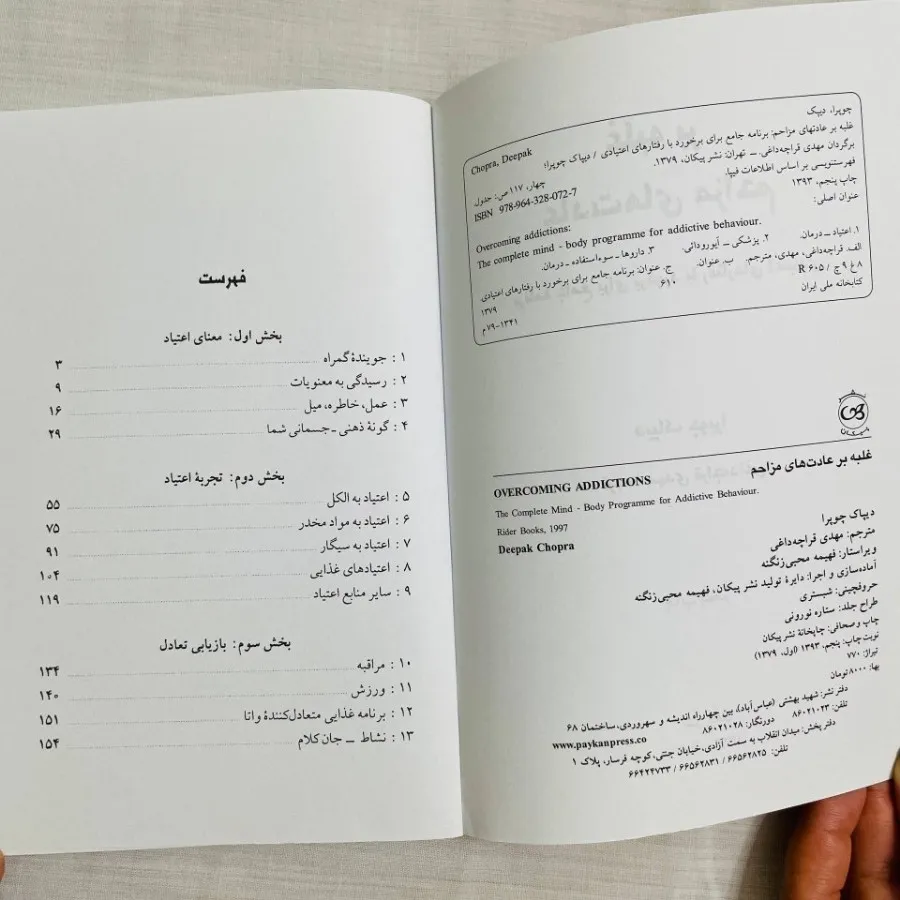 چوپرا، دیپک
Chopra, Deepak
غلبه بر عادتهای مزاحم: برنامه جامع برای برخورد با رفتارهای اعتیادی / دیپاک چوپرا؛
برگردان مهدی قراچه‌داغی. ــ تهران: نشر پیکان، ۱۳۷۹.
چهار، ۱۱۷ ص: جدول
ISBN 978-964-328-072-7
فهرستنویسی بر اساس اطلاعات فیپا.
چاپ پنجم، ۱۳۹۳
عنوان اصلی:
Overcoming addictions:
The complete mind - body programme for addictive behaviour.
۱. اعتیاد ــ درمان. ۲. پزشکی ــ آیورودائی. ۳. داروها ــ سوءاستفاده ــ درمان.
الف. قراچه‌داغی، مهدی، مترجم. ب. عنوان. ج. عنوان: برنامه جامع برای برخورد با رفتارهای اعتیادی.
۸ غ ۹ چ / R ۶۰۵ ۶۱۰ ۱۳۷۹
کتابخانه ملی ایران ۱۳۴۱-۷۹ م
پیکان
غلبه بر عادت‌های مزاحم
OVERCOMING ADDICTIONS
The Complete Mind - Body Programme for Addictive Behaviour.
Rider Books, 1997
Deepak Chopra
دیپاک چوپرا
مترجم: مهدی قراچه‌داغی
ویراستار: فهیمه محبی‌زنگنه
آماده‌سازی و اجرا: دایرهٔ تولید نشر پیکان، فهیمه محبی‌زنگنه
حروفچینی: شبستری
طراح جلد: ستاره نورونی
چاپ و صحافی: چاپخانهٔ نشر پیکان
نوبت چاپ: پنجم، ۱۳۹۳ (اول، ۱۳۷۹)
تیراژ: ۷۷۰
بها: ۸۰۰۰ تومان
دفتر نشر: شهید بهشتی (عباس‌آباد)، بین چهارراه اندیشه و سهروردی، ساختمان ۶۸
تلفن: ۸۶۰۲۱۰۲۳ دورنگار: ۸۶۰۲۱۰۲۸ www.paykanpress.co
دفتر پخش: میدان انقلاب به سمت آزادی، خیابان جنتی، کوچه فرسار، پلاک ۱
تلفن: ۶۶۵۶۲۸۲۵ / ۶۶۵۶۲۸۳۱ / ۶۶۴۲۴۷۳۳
فهرست
بخش اول: معنای اعتیاد
۱ : جویندهٔ گمراه ۳
۲ : رسیدگی به معنویات ۹
۳ : عمل، خاطره، میل ۱۶
۴ : گونهٔ ذهنی ـ جسمانی شما ۲۹
بخش دوم: تجربهٔ اعتیاد
۵ : اعتیاد به الکل ۵۵
۶ : اعتیاد به مواد مخدر ۷۵
۷ : اعتیاد به سیگار ۹۱
۸ : اعتیادهای غذایی ۱۰۴
۹ : سایر منابع اعتیاد ۱۱۹
بخش سوم: بازیابی تعادل
۱۰ : مراقبه ۱۳۴
۱۱ : ورزش ۱۴۰
۱۲ : برنامه غذایی متعادل‌کنندهٔ واتا ۱۵۱
۱۳ : نشاط ــ جان کلام ۱۵۴